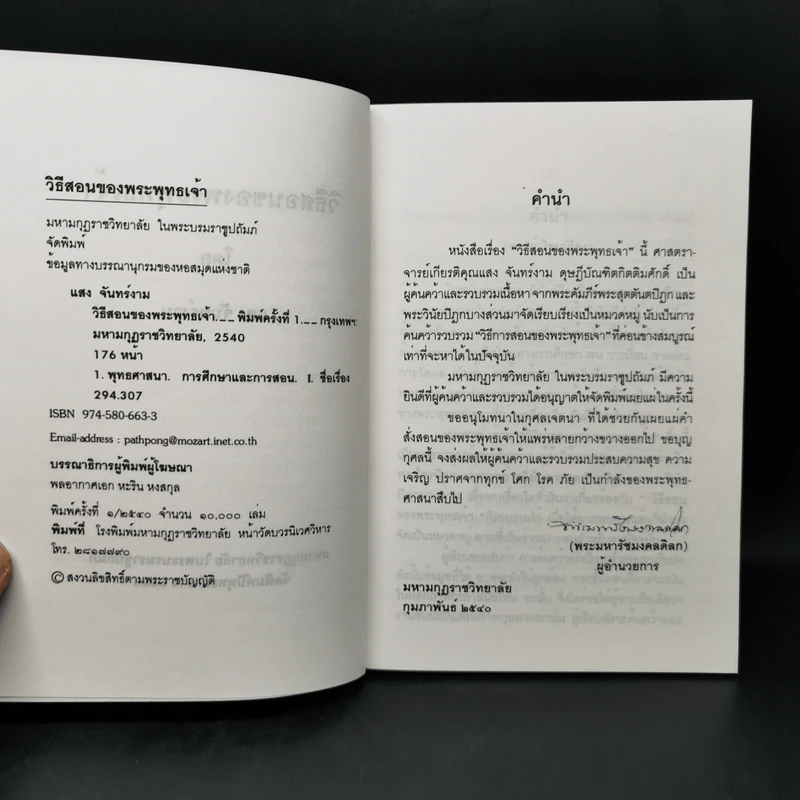 วิธีสอนของพระพุทธเจ้า
มหามกุฏราชวิทยาลัย ในพระบรมราชูปถัมภ์
จัดพิมพ์
ข้อมูลทางบรรณานุกรมของหอสมุดแห่งชาติ
แสง จันทร์งาม
วิธีสอนของพระพุทธเจ้า.__ พิมพ์ครั้งที่ 1.__ กรุงเทพฯ:
มหามกุฏราชวิทยาลัย, 2540
176 หน้า
1. พุทธศาสนา. การศึกษาและการสอน. I. ชื่อเรื่อง
294.307
ISBN 974-580-663-3
Email-address : pathpong@mozart.inet.co.th
บรรณาธิการผู้พิมพ์ผู้โฆษณา
พลอากาศเอก หะริน หงสกุล
พิมพ์ครั้งที่ ๑/๒๕๔๐ จำนวน ๑๐,๐๐๐ เล่ม
พิมพ์ที่ โรงพิมพ์มหามกุฏราชวิทยาลัย หน้าวัดบวรนิเวศวิหาร
โทร. ๒๘๑๗๗๙๐
© สงวนลิขสิทธิ์ตามพระราชบัญญัติ
คำนำ
หนังสือเรื่อง "วิธีสอนของพระพุทธเจ้า" นี้ ศาสตรา-
จารย์เกียรติคุณแสง จันทร์งาม ดุษฎีบัณฑิตกิตติมศักดิ์ เป็น
ผู้ค้นคว้าและรวบรวมเนื้อหา จากพระคัมภีร์พระสุตตันตปิฎก และ
พระวินัยปิฎกบางส่วนมาจัดเรียบเรียงเป็นหมวดหมู่ นับเป็นการ
ค้นคว้ารวบรวม "วิธีการสอนของพระพุทธเจ้า" ที่ค่อนข้างสมบูรณ์
เท่าที่จะหาได้ในปัจจุบัน
มหามกุฏราชวิทยาลัย ในพระบรมราชูปถัมภ์ มีความ
ยินดีที่ผู้ค้นคว้าและรวบรวมได้อนุญาตให้จัดพิมพ์เผยแผ่ในครั้งนี้
ขออนุโมทนาในกุศลเจตนา ที่ได้ช่วยกันเผยแผ่คำ
สั่งสอนของพระพุทธเจ้าให้แพร่หลายกว้างขวางออกไป ขอบุญ
กุศลนี้ จงส่งผลให้ผู้ค้นคว้าและรวบรวมประสบความสุข ความ
เจริญ ปราศจากทุกข์ โศก โรค ภัย เป็นกำลังของพระพุทธ-
ศาสนาสืบไป
(พระมหารัชมงคลดิลก)
ผู้อำนวยการ
มหามกุฏราชวิทยาลัย
กุมภาพันธ์ ๒๕๔๐